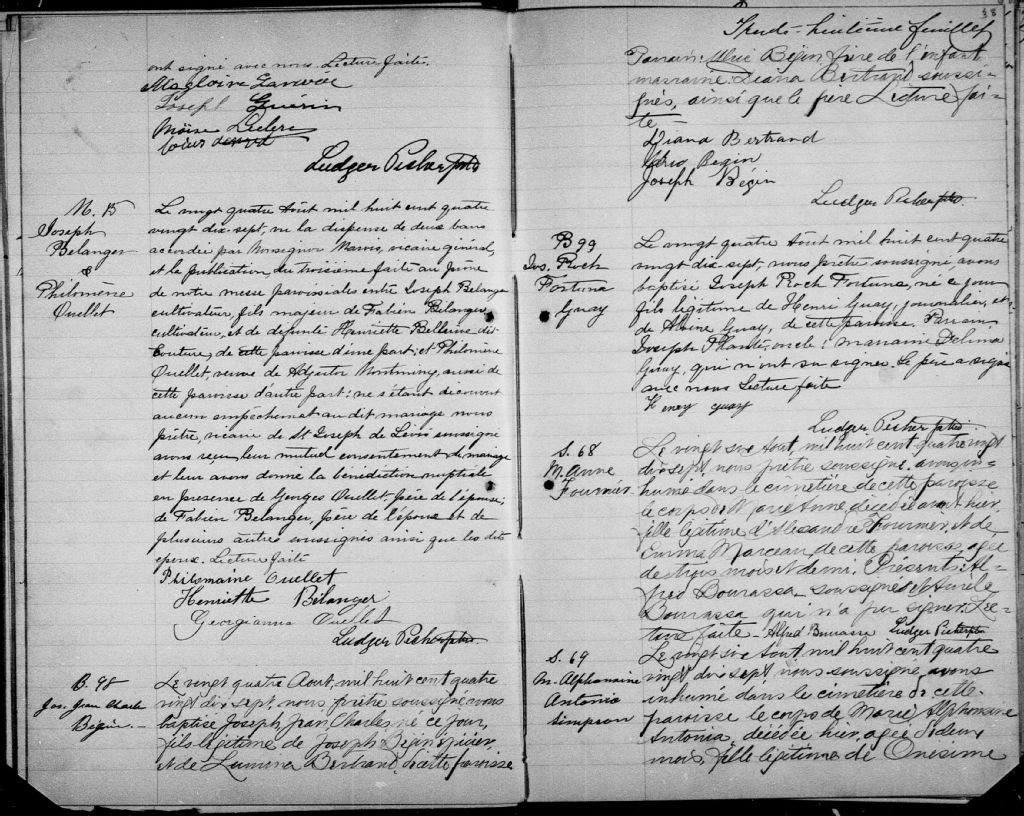 ont signé avec nous. Lecture faite.
Magloire
Joseph Guérin
Moïse Leclerc
Ludger Picher ptre
M. 15
Joseph
Belanger
&
Philomène
Ouellet
Le vingt quatre Août mil huit cent quatre
vingt dix-sept, vu la dispense de deux bans
accordée par Monseignor Marois, vicaire général,
et la publication du troisième faite au prône
de notre messe paroissiales entre Joseph Belanger
cultivateur, fils majeur de Fabien Bélanger
cultivateur, et de defunte Henriette Belleine dit
Couture, de cette paroisse d'une part; et Philomène
Ouellet, veuve de Adjutor Montminy, aussi de
cette paroisse d'autre part: ne s'étant découvert
aucun empêchemat au dit mariage nous
prêtre, vicaire de St Joseph de Lévis soussigné
avons reçu leur mutuel consentement de mariage
et leur avons donné la bénédiction nuptiale
en presence de Georges Ouellet, père de l'épouse;
de Fabien Belanger, père de l'époux et de
plusieurs autres soussignés ainsi que les dits
epoux. Lecture faite
Philomaine Ouellet
Henriette Bélanger
Georgianna Ouellet
Ludger Picher ptre
B. 98
Jos. Jean Charles
Bégin
Le vingt quatre Aout, mil huit cent quatre
vingt dix sept, nous prêtre soussigné avons
baptise Joseph, Jean Charles né ce jour,
fils légitime de Joseph Bégin
et de Lumina Bertrand, de cette paroisse
38
Trente-huitième feuillet
Parrain Bégin frère de l'enfant
marraine Diana Bertrand soussi-
gnés, ainsi que le père Lecture fai-
te
Diana Bertrand
Begin
Joseph Bégin
Ludger Picher ptre
B 99
Jos. Roch
Fortuna
Guay
Le vingt quatre Aout mil huit cent quatre
vingt dix-sept, nous prêtre soussigné avons
baptisé Joseph Roch Fortuna, né ce jour
fils légitime de Henri Guay, journalier, et
de Guay, de cette paroisse. Parrain,
Joseph Plante, oncle; marraine Delima
Guay, qui n'ont su signer. Le père a signé
avec nous Lecture faite
Henry guay
Ludger Picher ptre
S. 68
M. Anne
Fournier
Le vingt six Aout, mil huit cent quatre vingt
dix sept, nous prêtre soussigné, avons in-
humé dans le cimetière de cette paroisse
le corps de Marie Anne, décédée avant hier,
fille légitime d'Alexandre Fournier, et de
Emma Marceau, de cette paroisse, agée
de trois mois et demi. Présents: Al-
fred Bourassa soussigné et
Bourassa qui n'a pu signer. Lec-
ture faite Alfred Bourassa Ludger Picher ptre
S. 69
M. Alphonsine
Antonia
Simpson
Le vingt six Aout mil huit cent quatre
vingt dix sept, nous soussigné, avons
inhumé dans le cimetière de cette
paroisse le corps de Marie Alphonsine
Antonia, décédée hier, agée de deux
mois, fille légitime de Onesime